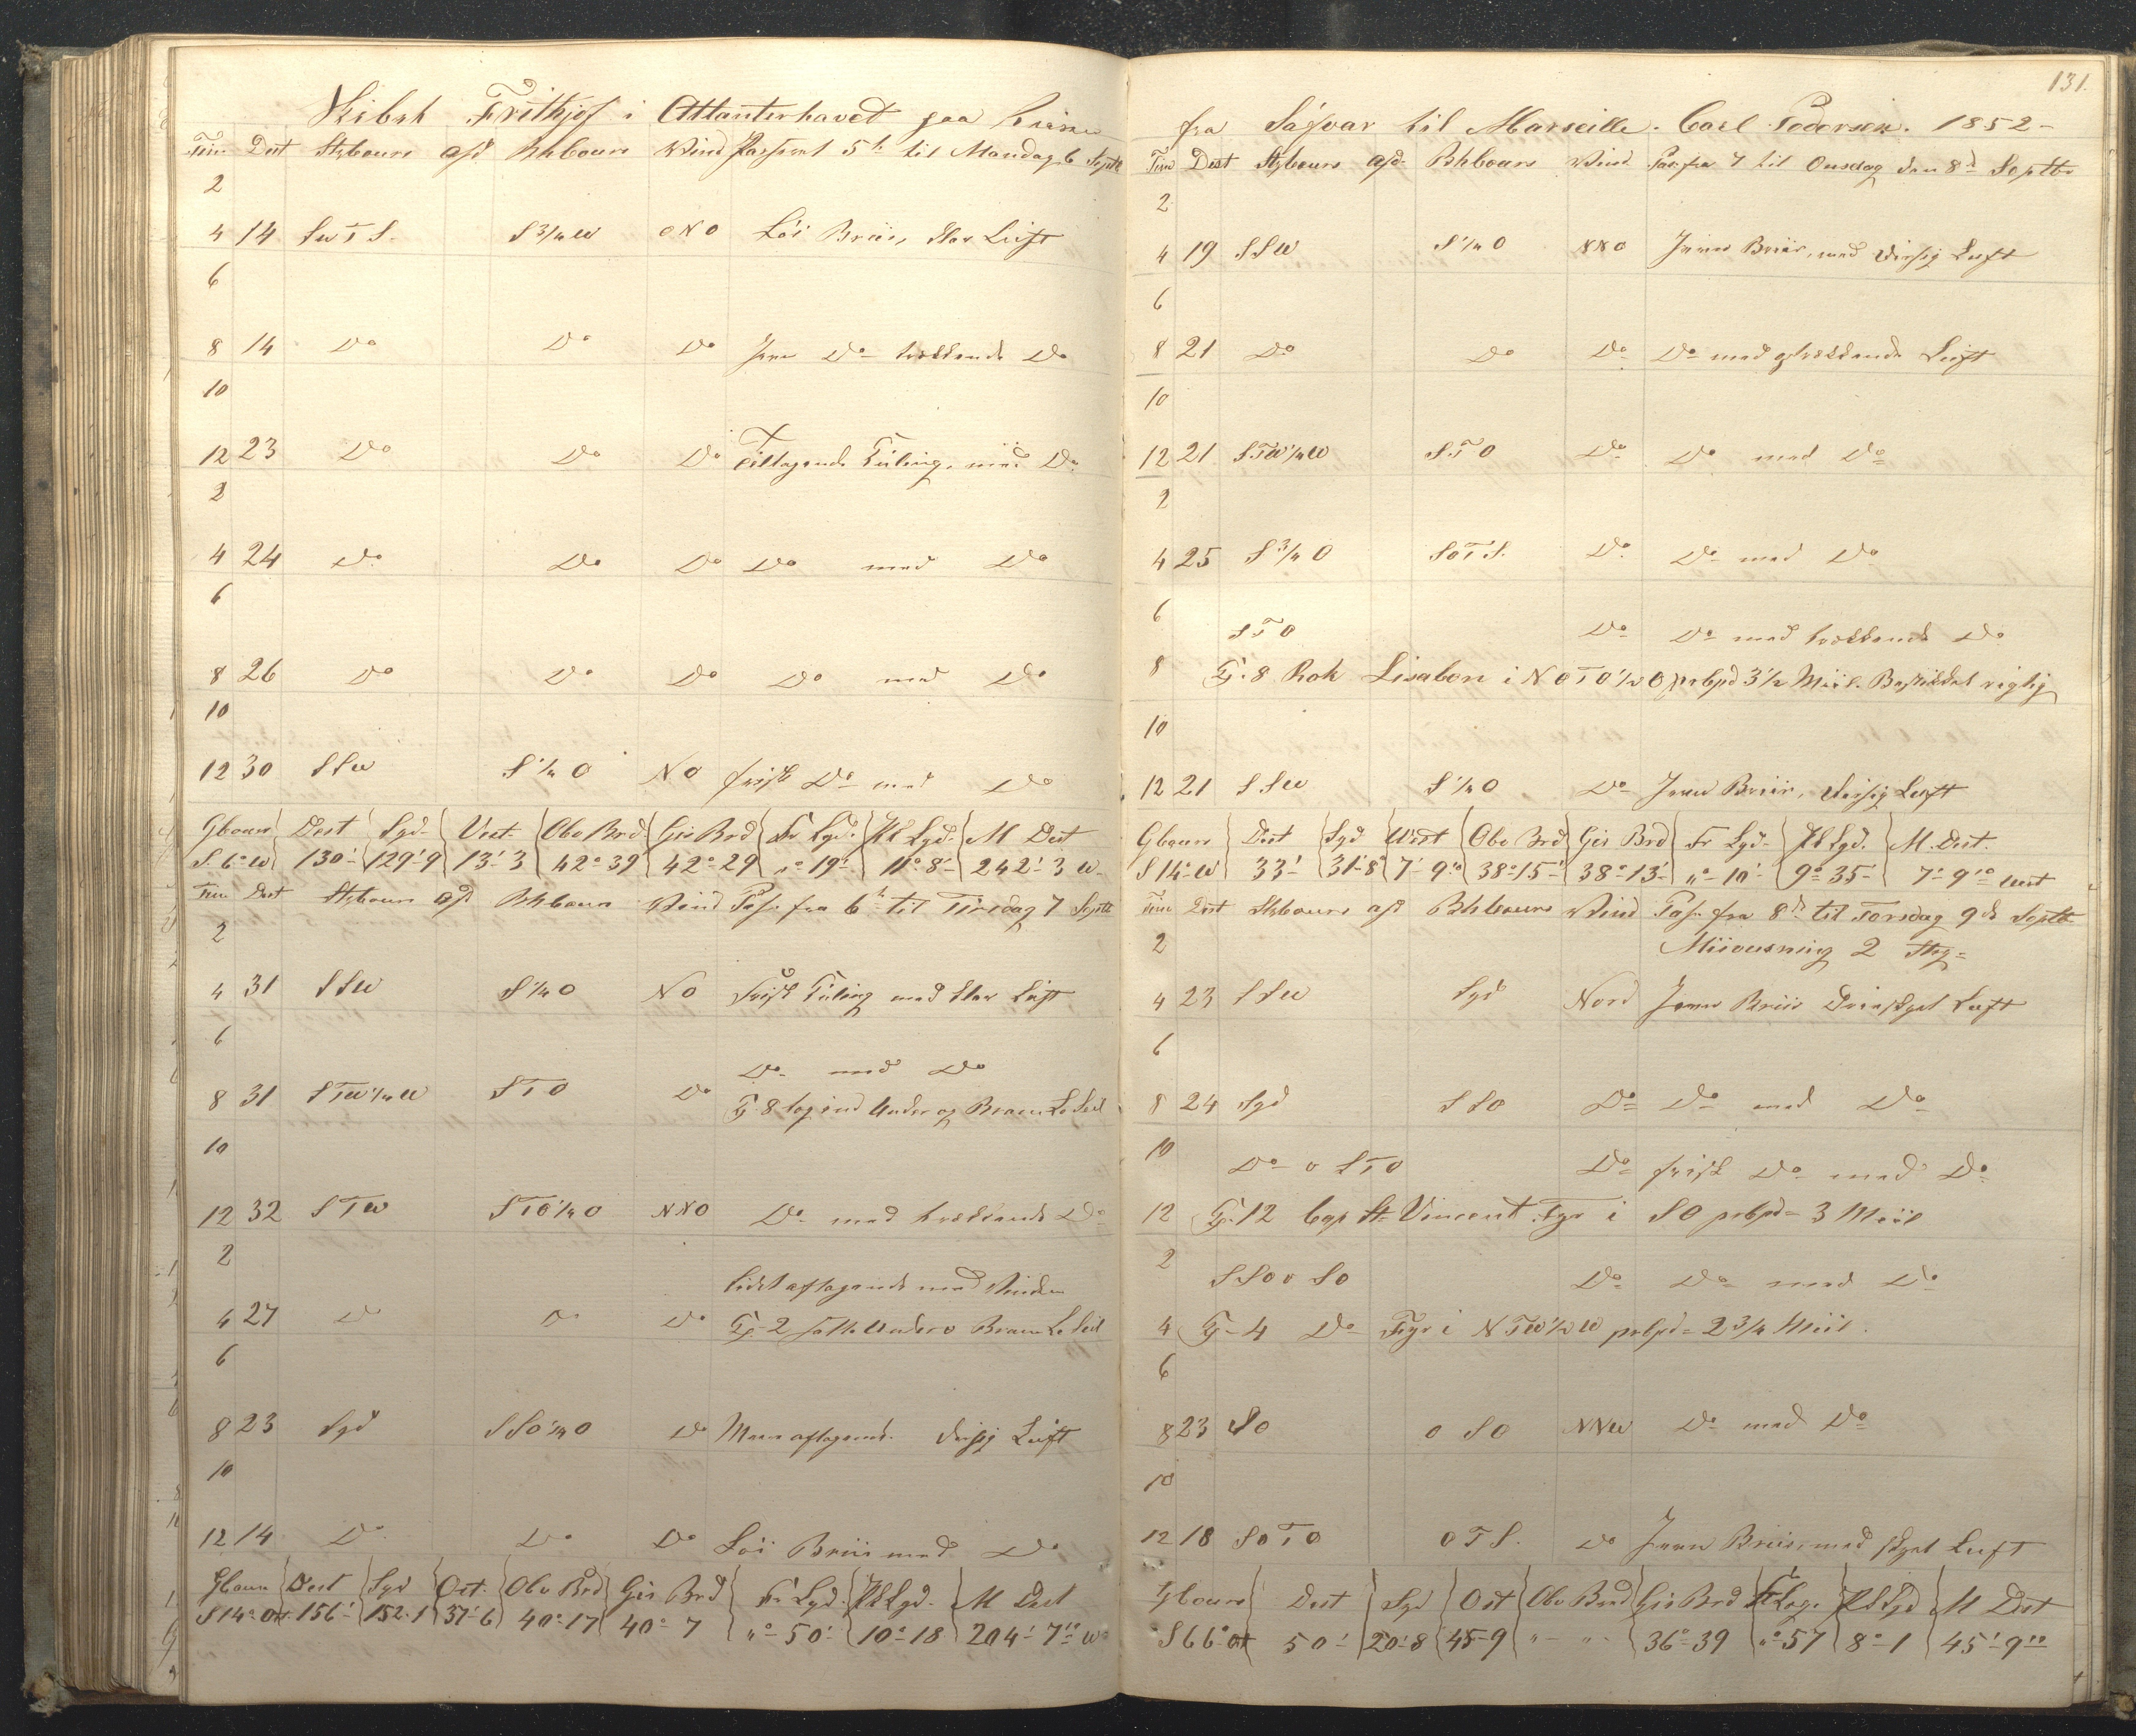 Skibet Frithjof i Attanterhavet paa Reise
Tim Dist Stbcours afd Bbcours Vind Passeret 5te til Mandag 6 Septb
2
4 14 SwTS. S3/4W ONO Löi Briis, klar Luft
6
8 14 Do Do Do Jevn Do trækkende Do
10
12 23 Do Do Do Tiltagende Kuling, med Do
2
4 24 Do Do Do Do med Do
6
8 26 Do Do Do Do med Do
10
12 30 SSW S1/4O NO frisk Do med Do
Gcours Dist Syd Vest Obs Brd Gis Brd Fr Lgd Pl Lgd M Dist
S.6°W 130' 129'9 13'3 42°39 42°29 "°19' 11°8' 242'3 W
Tim Dist Stbcours afd Bbcours Vind Pas. fra 6te til Tirsdag 7 Septb
2
4 31 SSW S1/4O NO Frisk Kuling med klar Luft
6
Do med Do
8 31 STW1/4W STO Do Kl 8 tog ind Under og Bram Læ Seil
10
12 32 STW STO1/4O NNO Do med trækkende Do
2
lidt aftagende med Vinden
4 27 Do Do Do Kl 2 satte Under o Bram Læ Seil
6
8 23 Syd SSO1/4O Do Mere aftagende. diisig Luft
10
12 14 Do Do Do Löi Briis med Do
Gcours Dist Syd Ost Obs Brd Gis Brd Fr Lgd Pl Lgd M Dist
S14°Ost 156' 152'1 37'6 40°17 40°7 "°50' 10°18 204'7 W
131.
fra Sáfvar til Marseille. Carl Pedersen. 1852-
Tim Dist Stbcours afd Bbcours Vind Pas. fra 7 til Onsdag den 8d Septbr
2
4 19 SSW S1/4O NNO Jevn Briis, med diisig Luft
6
8 21 Do Do Do Do med trækkende Luft
10
12 21 STW1/4W STO Do Do med Do
2
4 25 S3/4O SOTS. Do Do med Do
6
STO Do Do med trækkende Do
8 Kl. 8 Rok Lisabon i NOTO1/2O prbpd 3 1/2 Miil. Bestikket rigtig
10
12 21 SSW S1/4O Do Jevn Briis, diisig Luft
Gcours Dist Syd West Obs Brd Gis Brd Fr Lgd Pl Lgd. M. Dist.
S14°W 33' 31'8 7'9 38°15' 38°13' "°10' 9°35' 7'9 West
Tim Dist Stbcours afd Bbcours Vind Pas. fra 8de til Torsdag 9de Septb
2 Misvisning 2 Stg
4 23 SSW Syd Nord Jevn Briis Luft
6
8 24 Syd SSO Do Do med Do
10
Do o STO Do frisk Do med Do
12 Kl. 12 Cap St Vincent Fyr i SO prbpd 3 Miil
2
SSO o SO Do Do med Do
4 Kl 4 Do Fyr i NTW1/2W prbpd 2 3/4 Miil.
6
8 23 SO OSO NNW Do med Do
10
12 18 SOTO OTS. Do Jevn Briis, med skyet Luft
Gcours Dist Syd Ost Obs Brd Gis Brd Fr Lgd Pl Lgd M Dist
S66°Ost 50' 20'8 45'9 " " 36°39 "°57 8°1 45'9